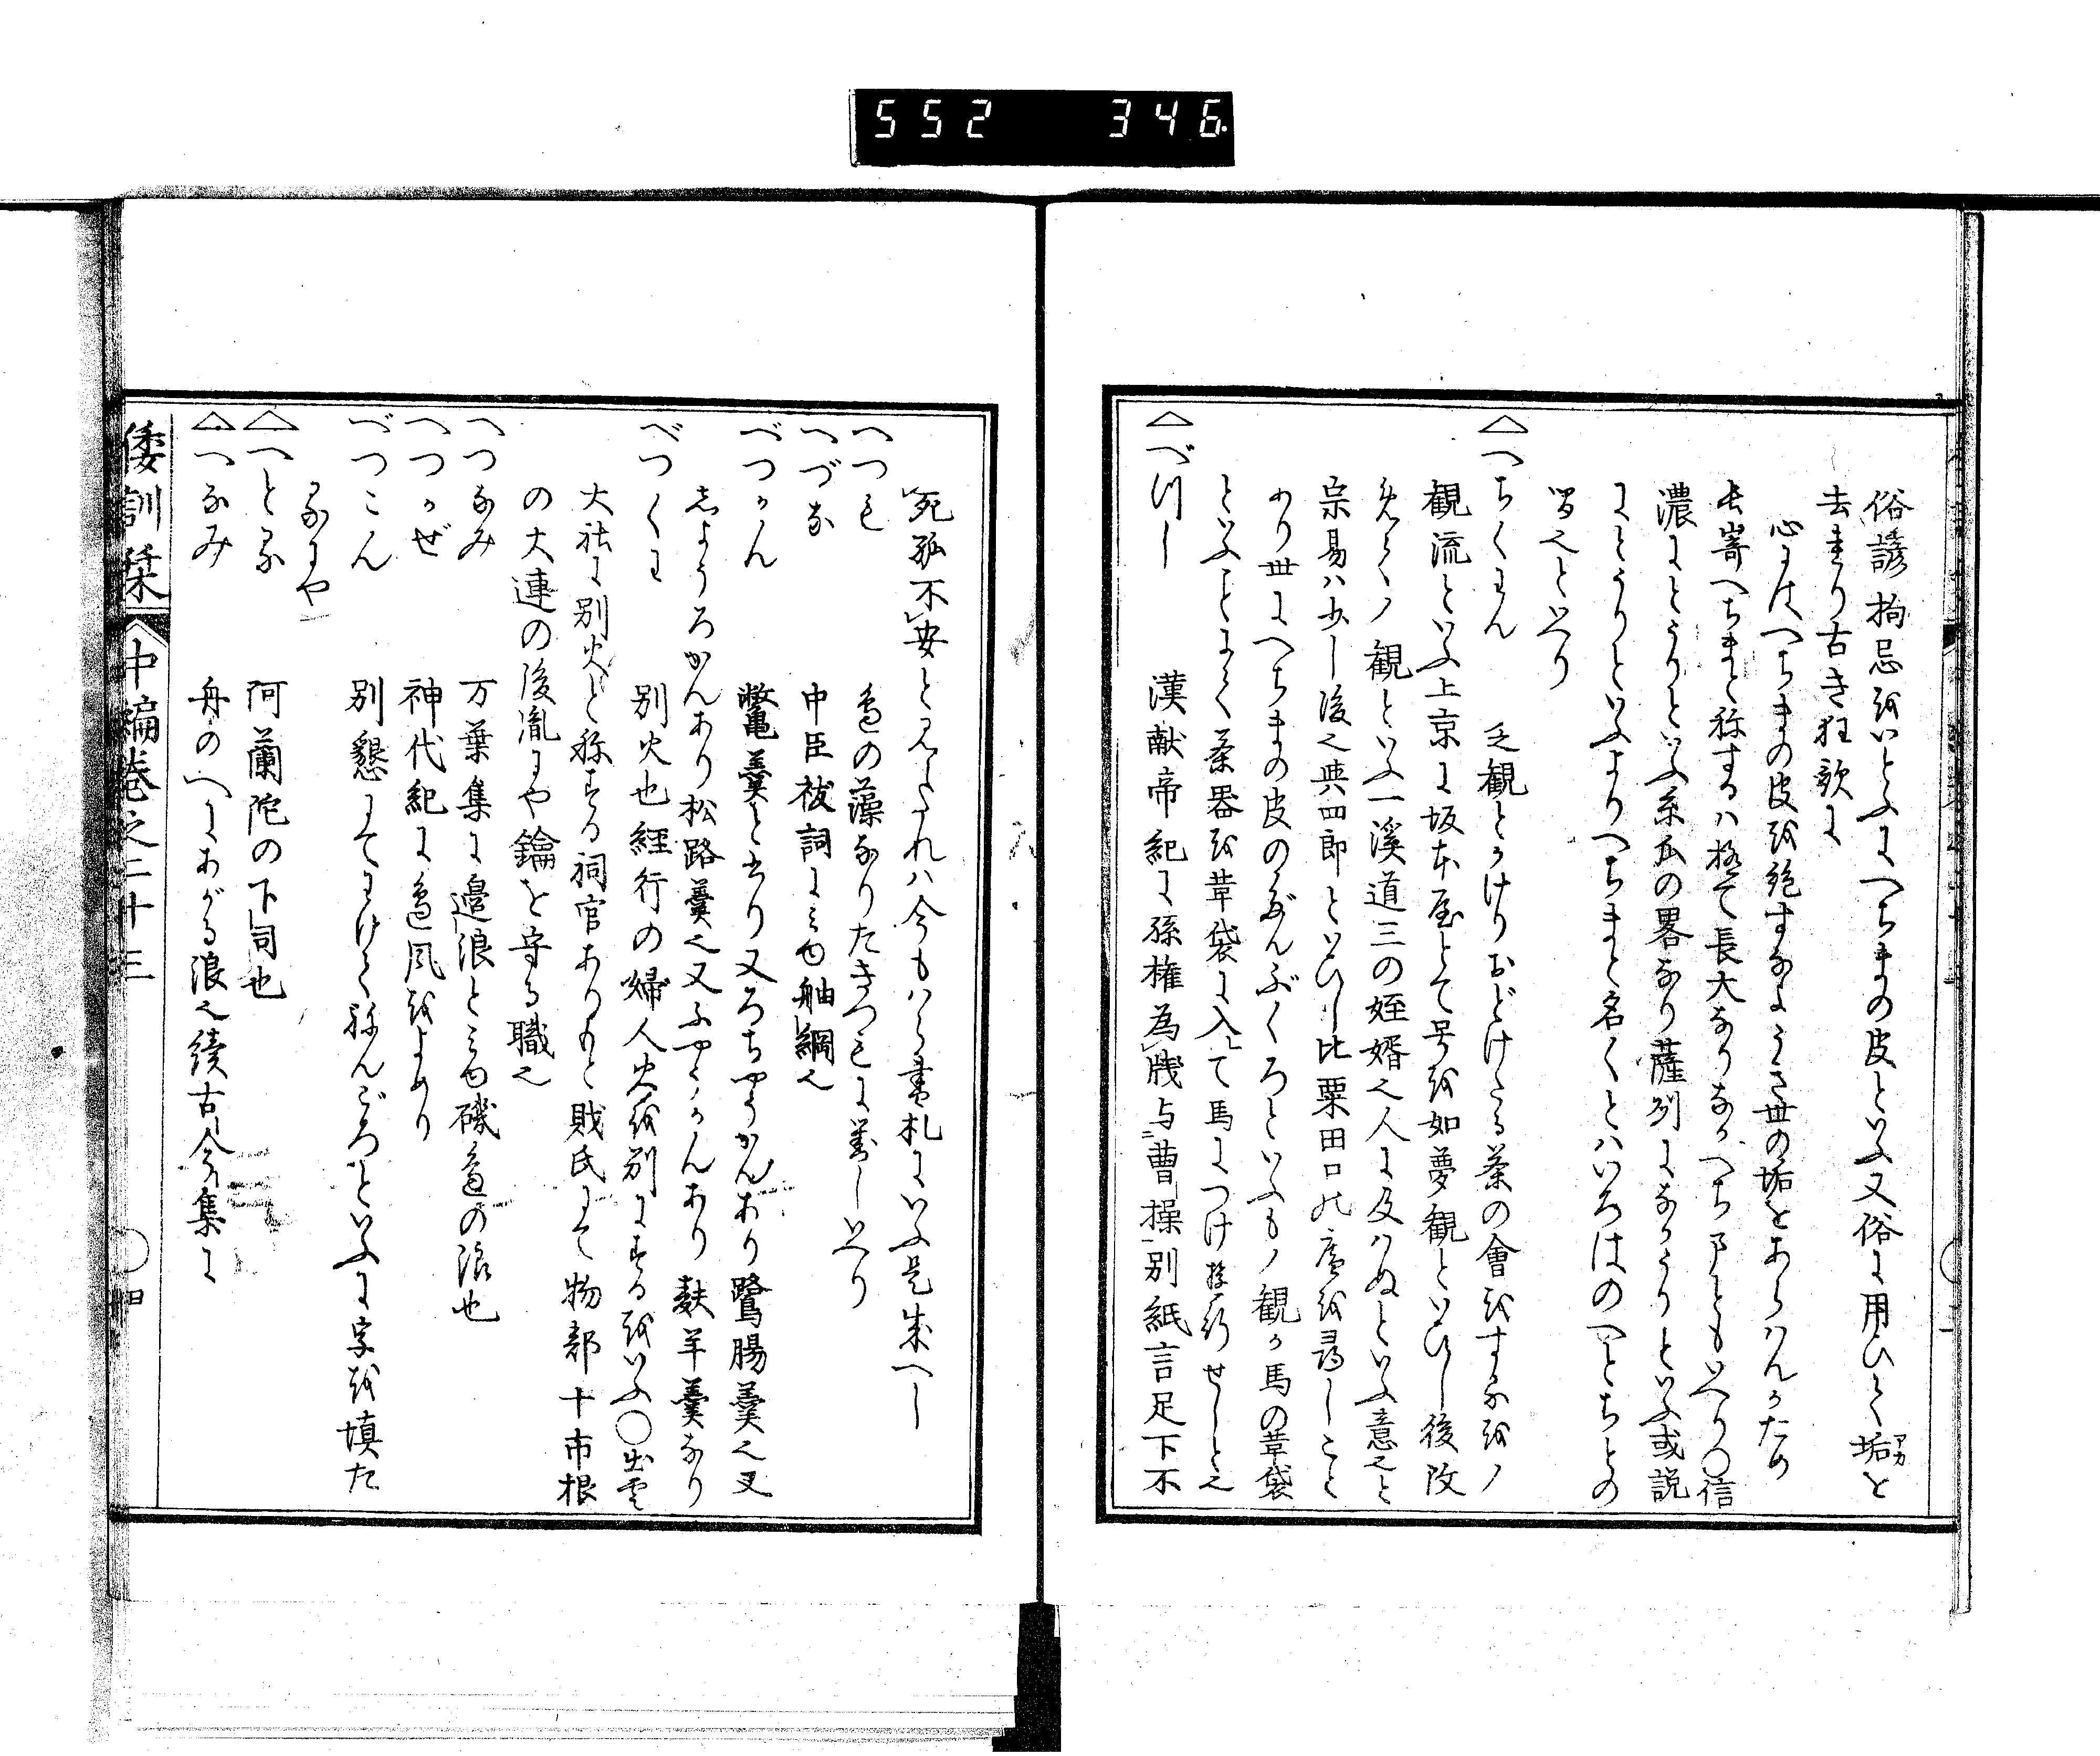 552 346
俗諺拘忌をいとふにへちまの皮といふ又俗に用ひて垢と
去るより古き狂歌に
心にはへちまの皮を絶すなようき世の垢をあらはんかため
長嵜へちまと称するは極て長大なりなかへちまともいへり〇信
濃にとうりといふ糸瓜の畧なり薩列になかうりといふ或説
にとうりといふよりへちまと名くとはいろはのへとちとの
間也といへり
△へちくわん 乏観とかけりおどけたる茶の會をするをノ
観流といふ上京に坂本屋とて号を如夢観といひし後改
めてノ観といふ一溪道三の姪婿也人に及はぬといふ意也と
宗易は少し後也與四郎といひし比粟田口の庵を尋しこと
あり世にへちまの皮のだんぶくろといふもノ観か馬の葦袋
といふことにて茶器を葦袋に入て馬につけ遊行せしと也
△べつし 漢献帝紀に孫権為牋与曹操別紙言足下不
死孤不安と見えたれは今もはら書札にいふ是成へし
へつも 邉の藻なりたきつもに對しいへり
へづな 中臣祓詞にみゆ舳綱也
べつかん 鼈羹と書り又ろちやうかんあり鷺腸羹也又
しようろかんあり松路羹也又ふやうかんあり麸羊羹なり
べつくわ 別火也経行の婦人火を別にするをいふ〇出雲
大社に別火と称する祠官あり名と財氏にて物部十市根
の大連の後胤にや鑰を守る職也
へつなみ 万葉集に邉浪とみゆ磯邉の浪也
へつかぜ 神代紀に邉風をよめり
べつこん 別懇にてわけてねんごろといふに字を填た
るにや
△へとる 阿蘭陀の下司也
△へなみ 舟のへにあがる浪也續古今集に
倭訓栞 中編巻之二十三 〇四